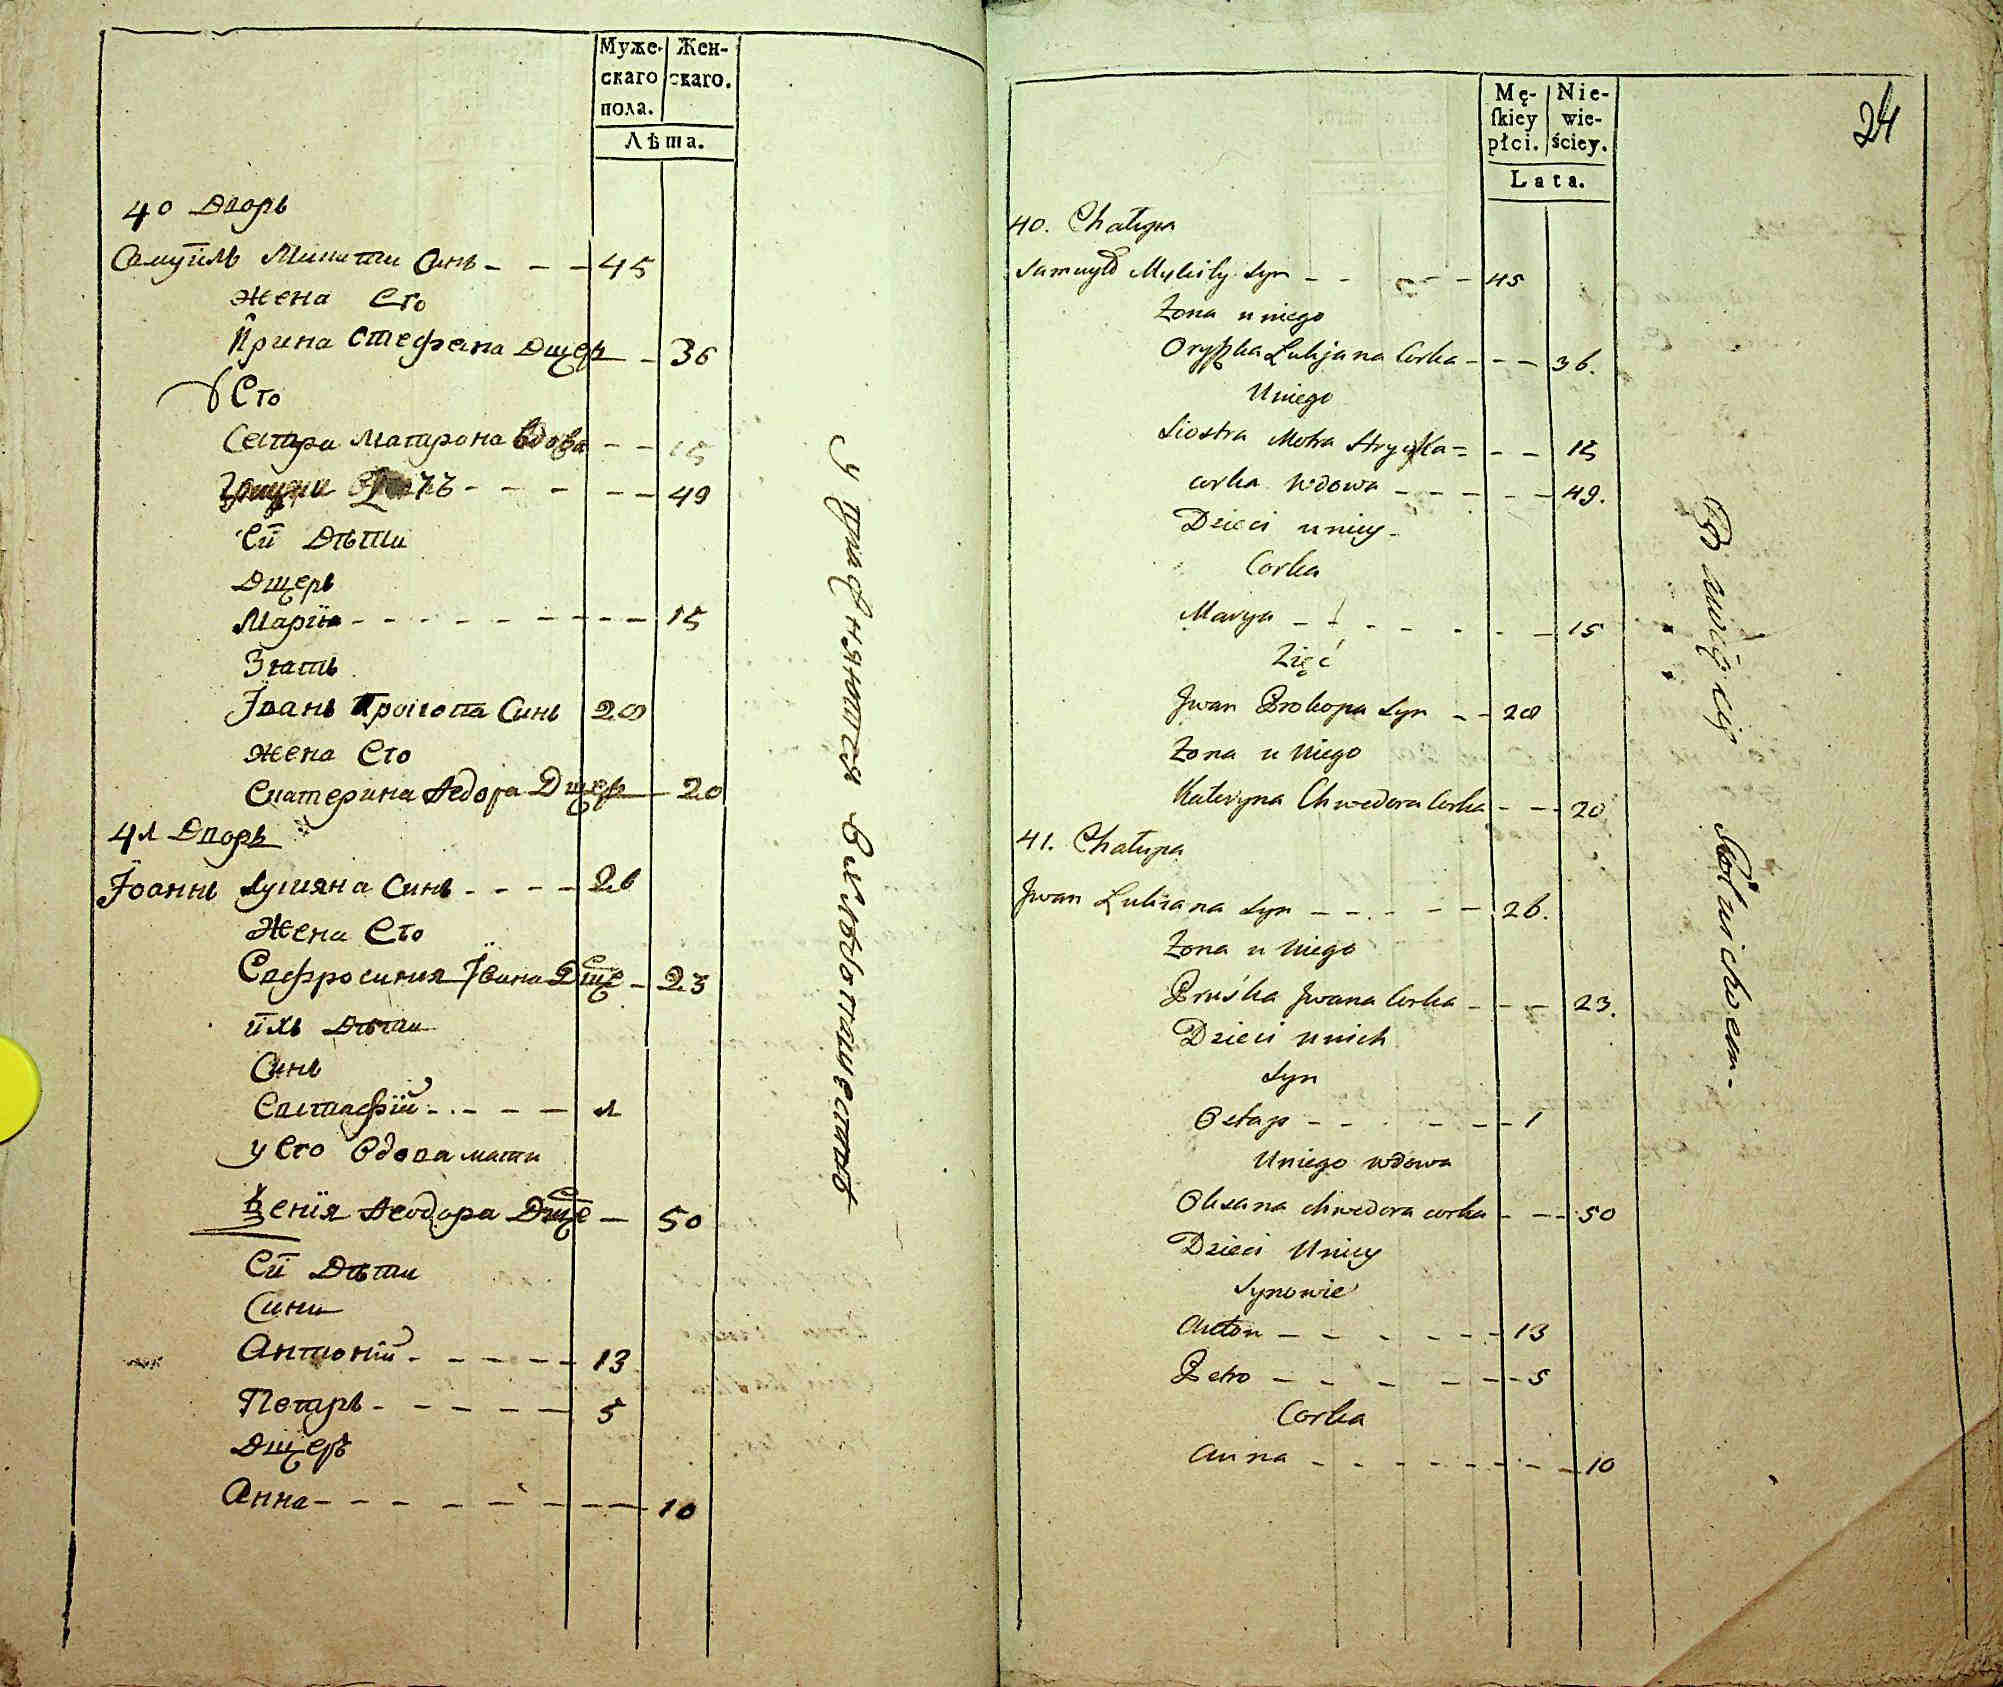 Муже- Жен-
скаго скаго.
пола.
Лѣта.
40 Дворъ
Самуїлъ Микити Синъ - - - 45
Жена Єго
Ирина Стефана Дщерь - 36
у Єго
Сестра Матрона вдова - - 15
- - - - - 49
Єї Дѣти
Дщерь
Марїя - - - - - - - - 15
Зять
Їванъ Прокопа Синъ 28
Жена Єго
Екатерина Ѳедора Дщерь - 20
41 Дворъ
Їоаннъ Лукияна Синъ - - - - 26
Жена Єго
Євфросиния Ївана Дще - 23
ихъ Дѣти
Синъ
Євстафїй - - - - - 1
у Єго вдова мати
Ѯенїя Ѳеодора Дще - 50
Єї Дѣти
Сини
Антонїй - - - - - 13
Петръ - - - - - 5
Дщерь
Анна - - - - - - - - - 10
24
Mę- Nie-
ſkiey wie-
płci. ściey.
Lata.
40. Chałupa
Samuyło Mykity Syn - - - - - 45
Żona u niego
Oryszka Lukjana Corka - - - 36.
U niego
Siostra Motra Stryska= - - 15
corka wdowa - - - - - 49.
Dzieci u niey -
Corka
Marya - - - - - - - 15
Zięć
Jwan Prokopa Syn - - 28
Żona u Niego
Kateryna Chwedora Corka - - - 20
41. Chałupa
Jwan Lukiana Syn - - - - - 26.
Żona u Niego
Pruśka Jwana Corka - - - 23.
Dzieci u nich
Syn
Ostap - - - - - - 1
U niego wdowa
Oksana chwedora corka - - - 50
Dzieci U niey
Synowie
Anton - - - - - - 13
Petro - - - - - - 5
Corka
Anna - - - - - - - - 10